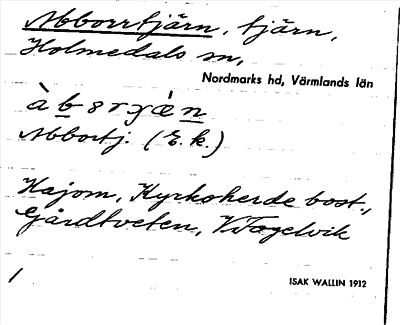 Abborrtjärn, tjärn,
Holmedals sn,
Nordmarks hd, Värmlands län
Abbortj. (E.k.)
Hajom, Kyrkoherde bost.,
Gårdtveten, V. Fågelvik
/
ISAK WALLIN 1912